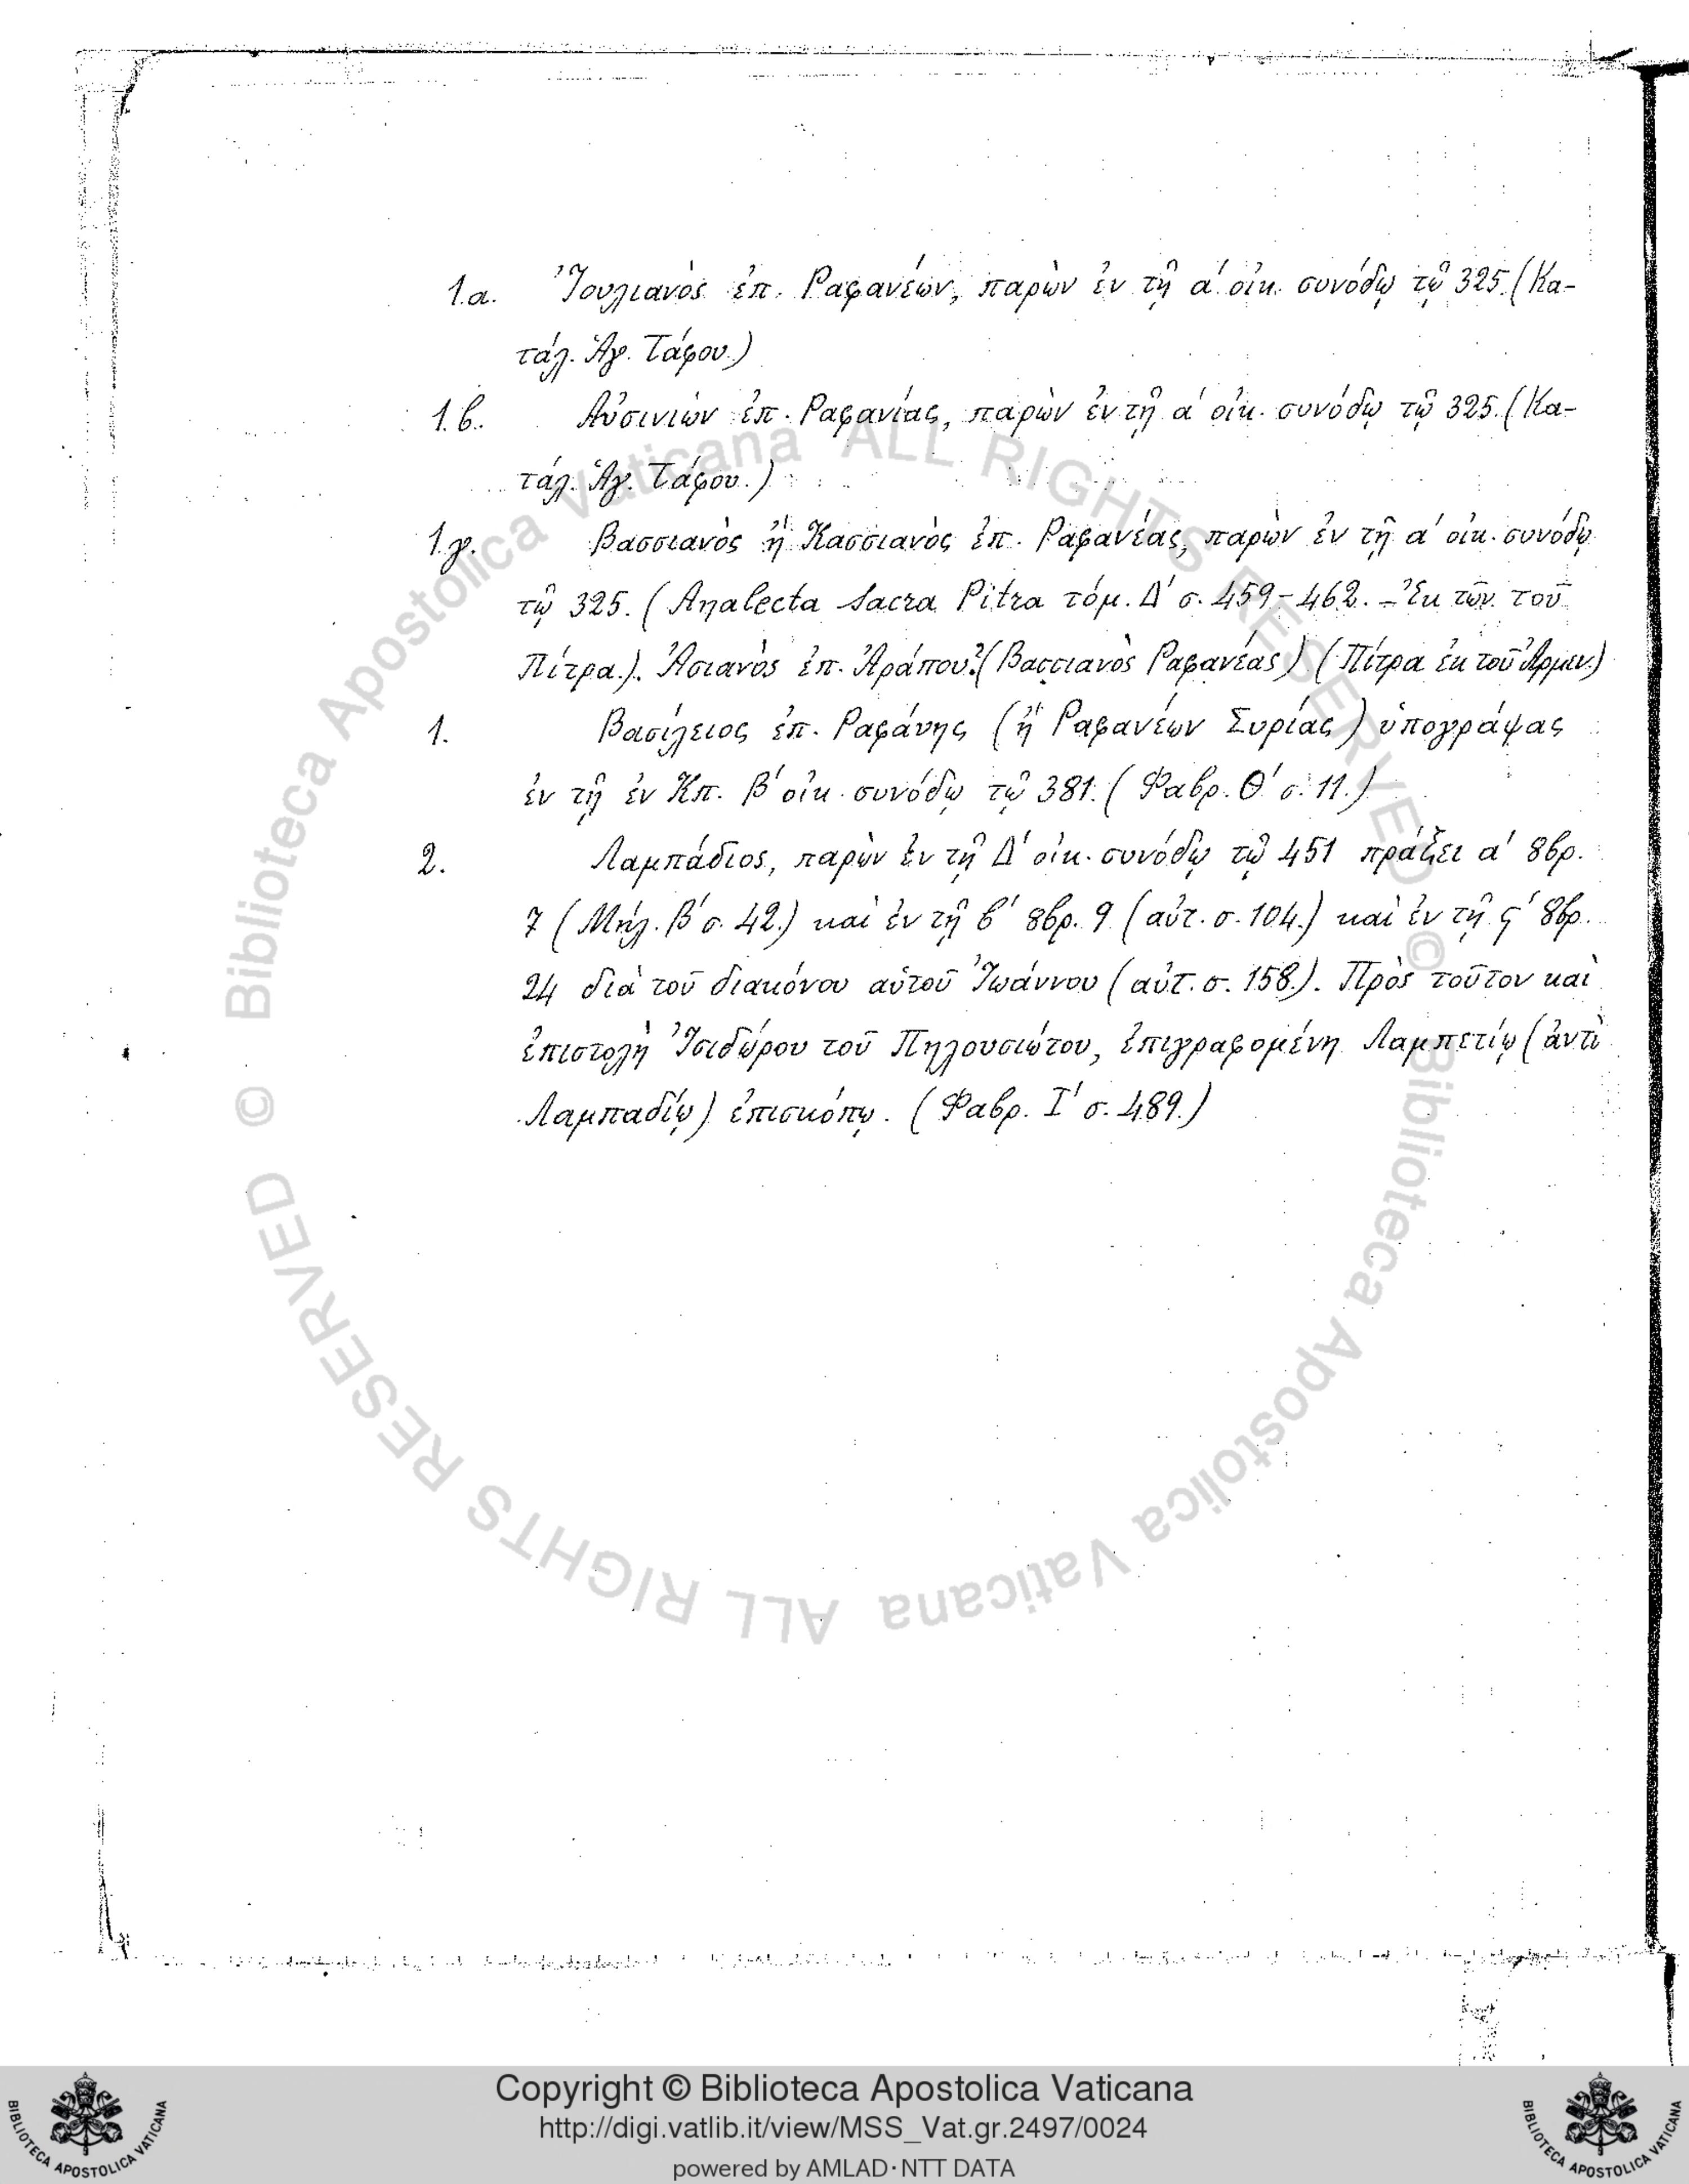 1.α. Ἰουλιανὸς ἐπ. Ραφανέων, παρὼν ἐν τῇ α΄ οἰκ. συνόδῳ τῷ 325. (Κα-
τάλ. Ἁγ. Τάφου.)
1.β. Αὐσινιὼν ἐπ. Ραφανίας, παρὼν ἐν τῇ α΄ οἰκ. συνόδῳ τῷ 325. (Κα-
τάλ. Ἁγ. Τάφου.)
1.γ. Βασσιανὸς ἢ Κασσιανὸς ἐπ. Ραφανέας, παρὼν ἐν τῇ α΄ οἰκ. συνόδῳ
τῷ 325. (Analecta Sacra Pitra τόμ. Δ΄ σ. 459-462. - Ἐκ τῶν τοῦ
Πίτρα.). Ἀσιανὸς ἐπ. Ἀράπου? (Βασσιανὸς Ραφανέας) (Πίτρα ἐκ τοῦ Ἀρμεν.)
1. Βασίλειος ἐπ. Ραφάνης (ἢ Ραφανέων Συρίας) ὑπογράψας
ἐν τῇ ἐν Κπ. β΄ οἰκ. συνόδῳ τῷ 381. (Φαβρ. Θ΄ σ. 11.)
2. Λαμπάδιος, παρὼν ἐν τῇ Δ΄ οἰκ. συνόδῳ τῷ 451 πράξει α΄ 8βρ.
7 (Μήλ. β΄ σ. 42.) καὶ ἐν τῇ β΄ 8βρ. 9 (αὐτ. σ. 104.) καὶ ἐν τῇ ϛ΄ 8βρ.
24 διὰ τοῦ διακόνου αὑτοῦ Ἰωάννου (αὐτ. σ. 158.). Πρὸς τοῦτον καὶ
ἐπιστολὴ Ἰσιδώρου τοῦ Πηλουσιώτου, ἐπιγραφομένη Λαμπετίῳ (ἀντὶ
Λαμπαδίῳ) ἐπισκόπῳ. (Φαβρ. Ι΄ σ. 489.)
© Biblioteca Apostolica Vaticana ALL RIGHTS RESERVED
© Biblioteca Apostolica Vaticana ALL RIGHTS RESERVED
BIBLIOTECA APOSTOLICA VATICANA
Copyright © Biblioteca Apostolica Vaticana
http://digi.vatlib.it/view/MSS_Vat.gr.2497/0024
powered by AMLAD·NTT DATA
BIBLIOTECA APOSTOLICA VATICANA